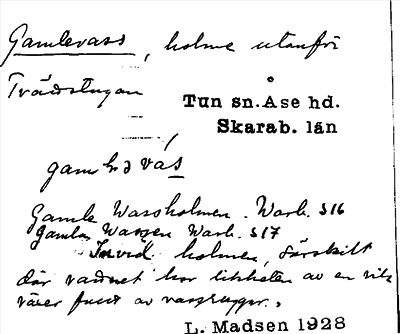 Gamlevass, holme utanför
Trädstugan
Tun sn. Åse hd.
Skarab. län
gamlə vás
Gamle Wassholmen. Warb. S16
Gamla Wassen Warb. S17
Invid holmen, särskilt
där vattnet har likheten av en vik
växer fullt av vassruggor.
L. Madsen 1928